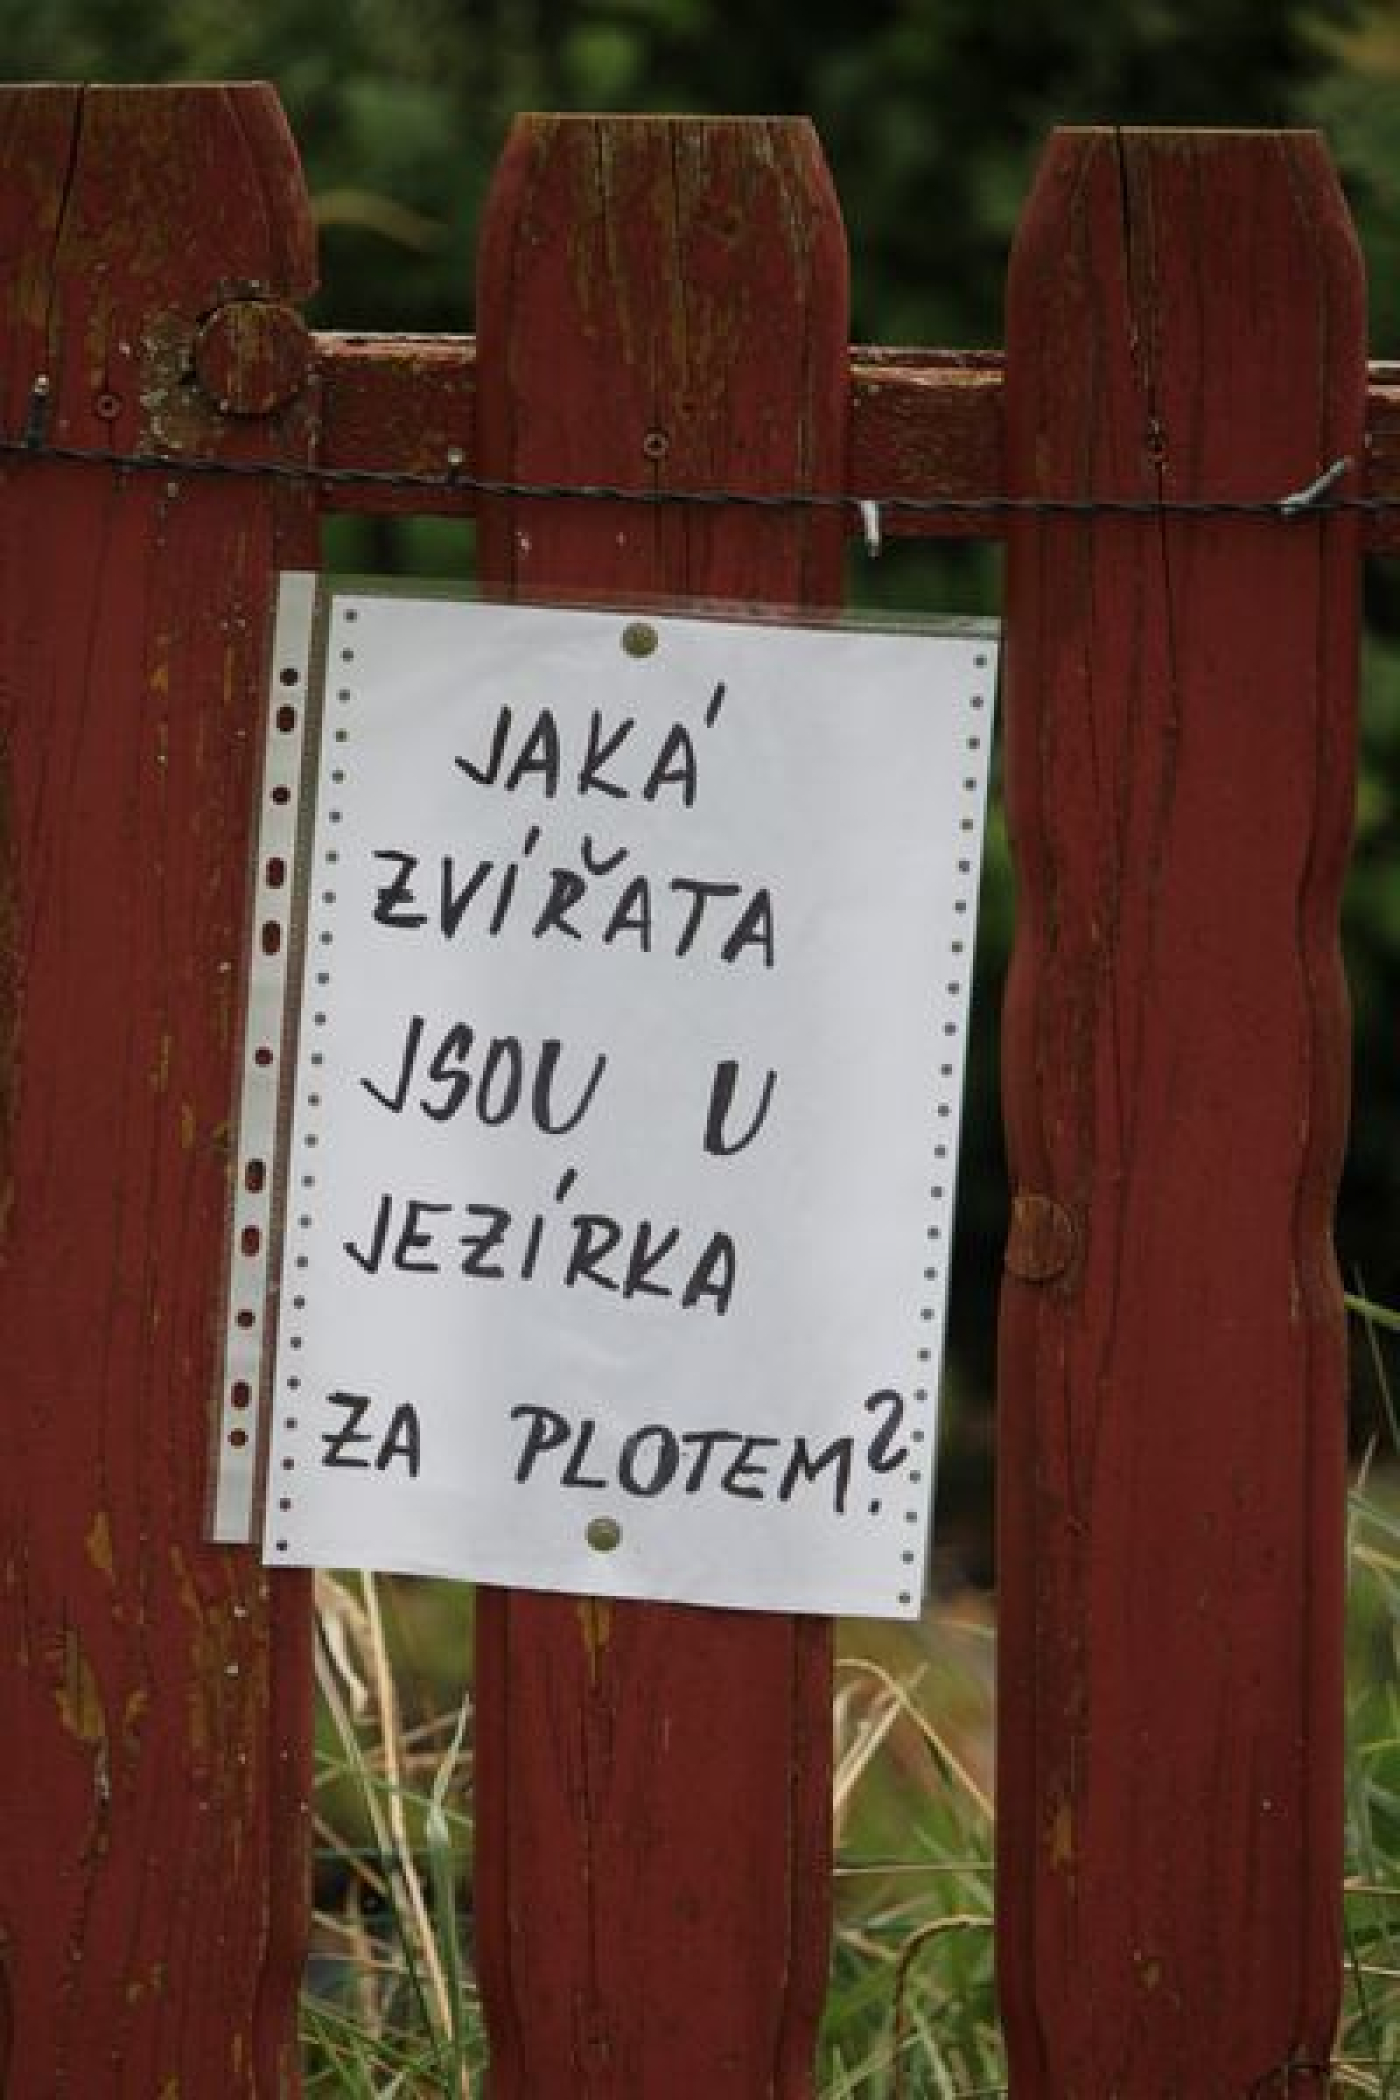 JAKÁ
ZVÍŘATA
JSOU U
JEZÍRKA
ZA PLOTEM?